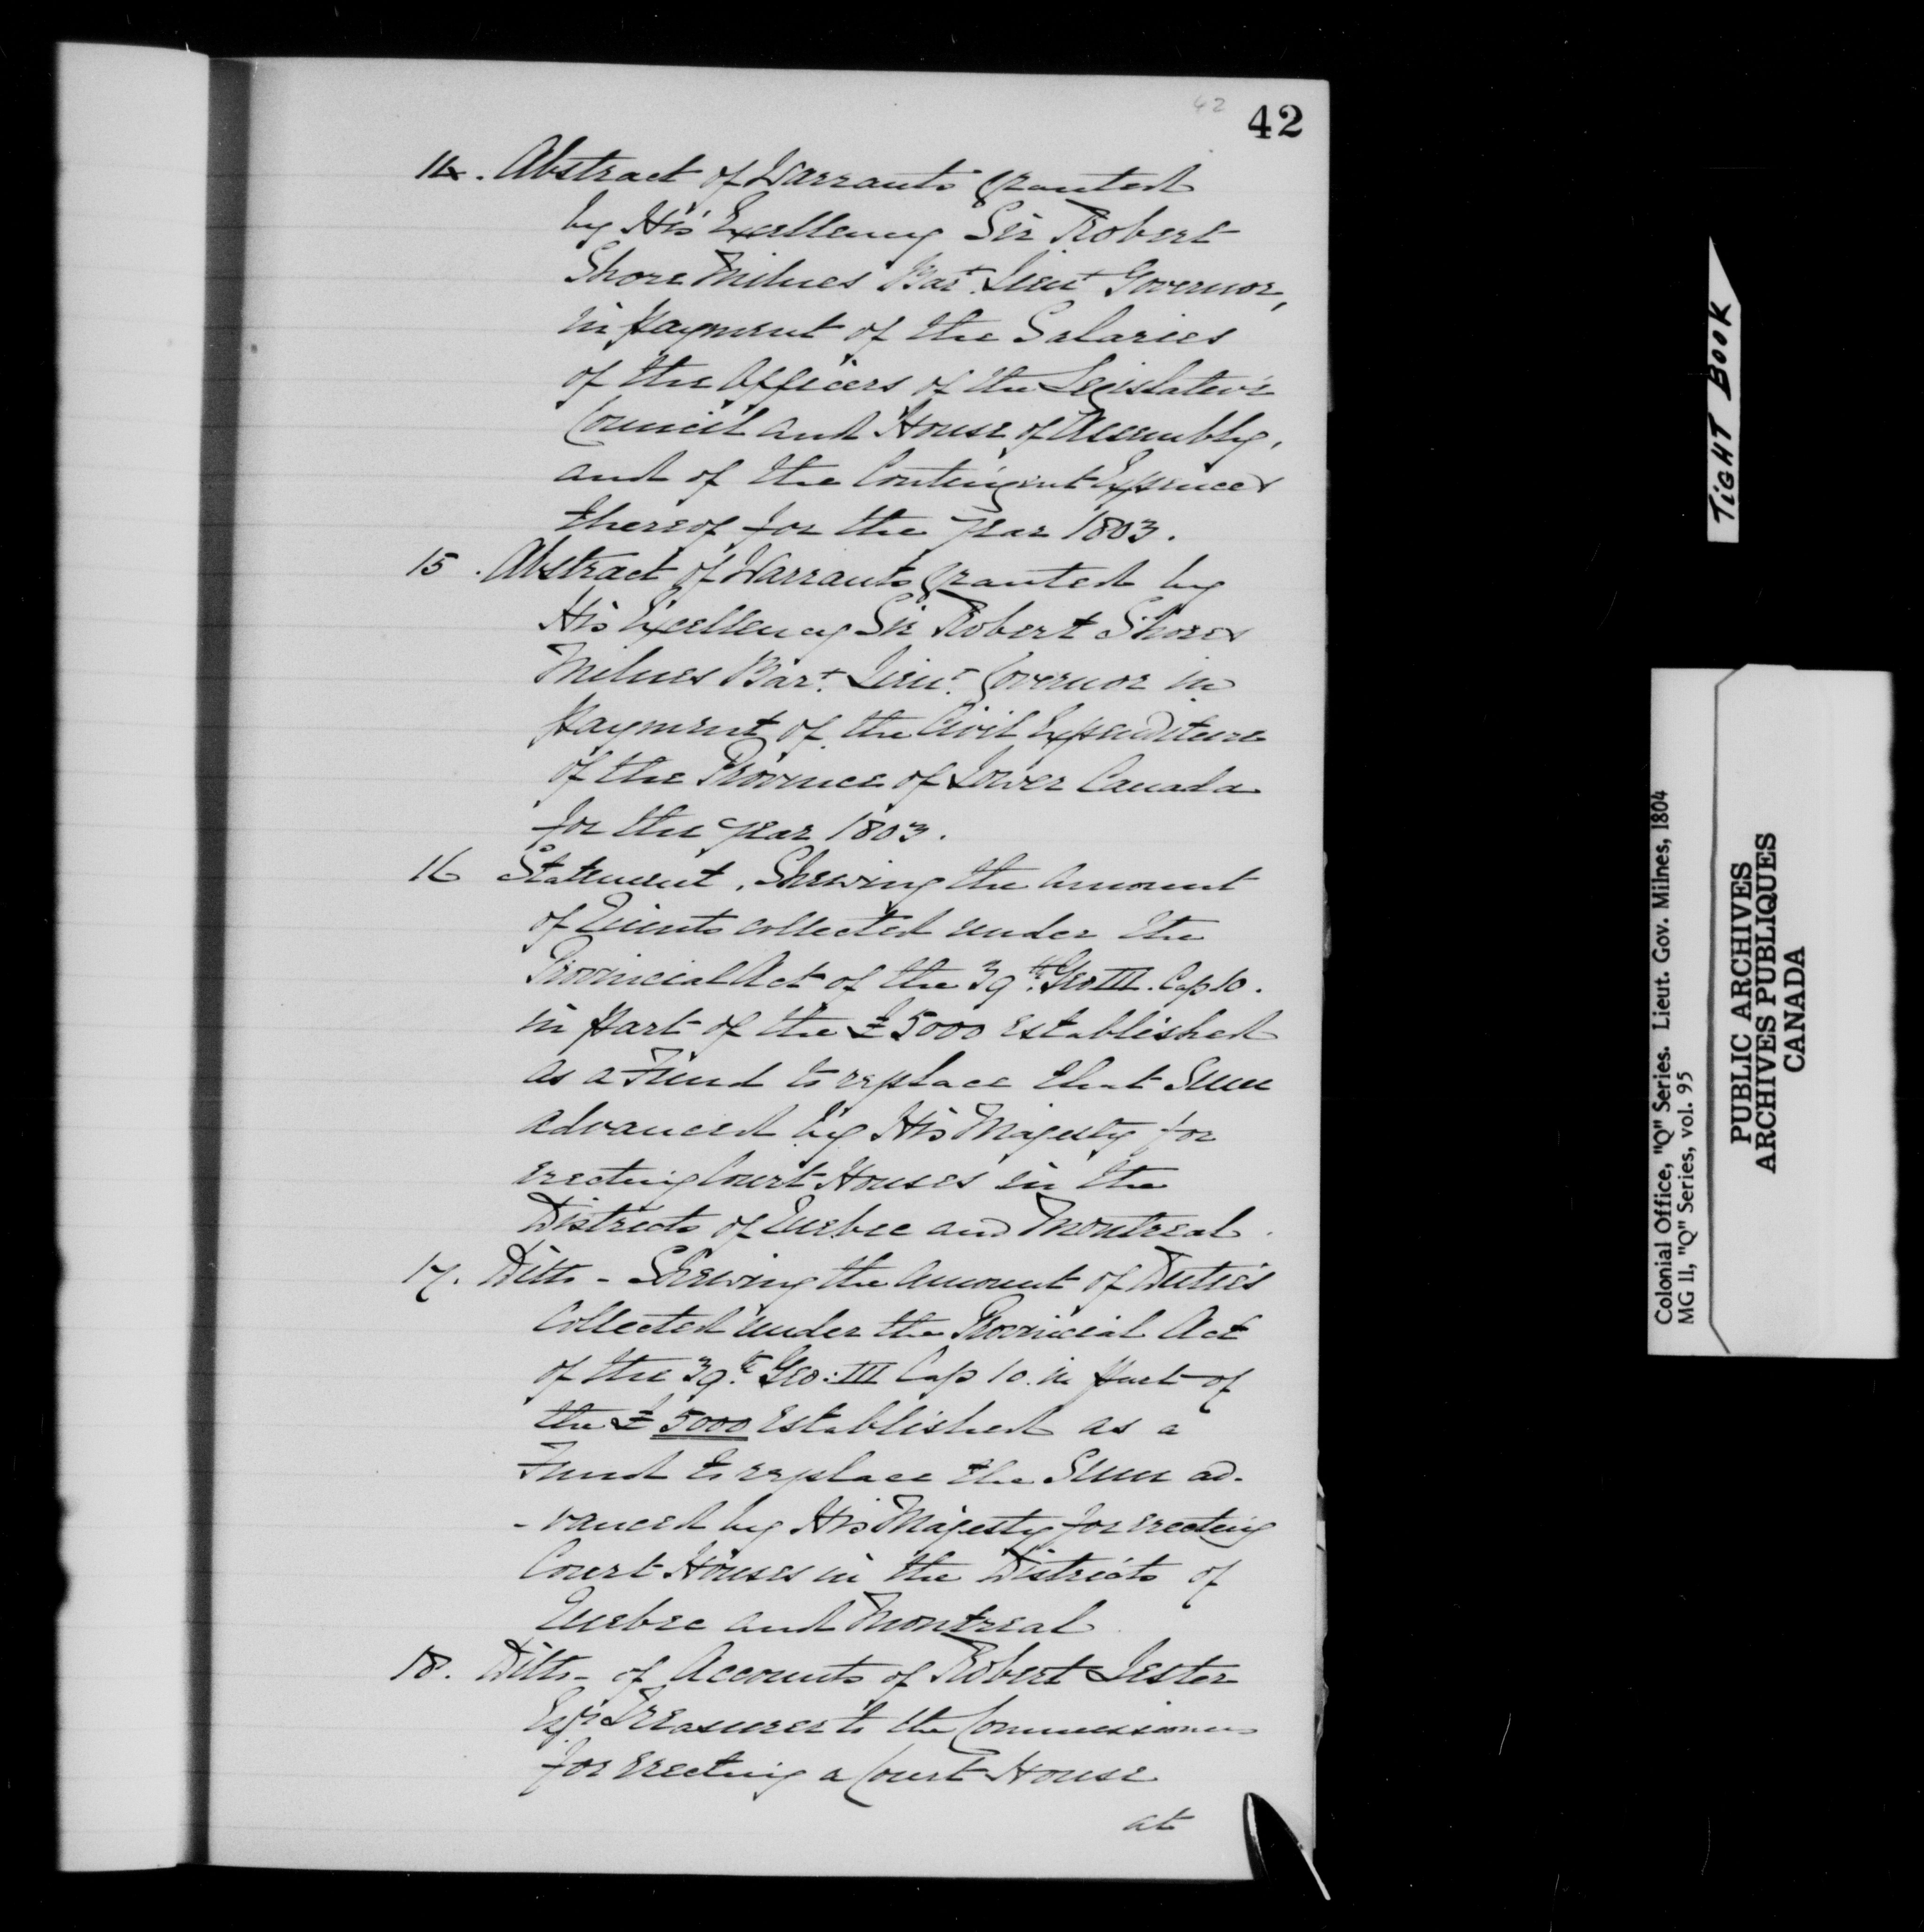 42
42
14. Abstract of Warrants granted
by His Excellency Sir Robert
Shore Milnes Bart. Lieut Governor,
in payment of the Salaries
of the Officers of the Legislative
Council and House of Assembly,
and of the Contingent Expences
thereof for the Year 1803.
15. Abstract of Warrants granted by
His Excellency Sir Robert Shore
Milnes Bart. Lieut. Governor in
payment of the Civil Expenditure
of the Province of Lower Canada
for the year 1803.
16 Statement, Shewing the amount
of Quints collected under the
Provincial Act of the 39th. Geo III. Cap 10.
in part of the £5000 established
as a Fund to replace that Sum
advanced by His Majesty for
erecting Court Houses in the
Districts of Quebec and Montreal.
17. Ditto - Shewing the amount of Duties
Collected under the Provincial Act
of the 39th. Geo: III Cap 10. in part of
the £5000 established as a
Fund to replace the Sum ad-
-vanced by His Majesty for erecting
Court Houses in the Districts of
Quebec and Montreal
18. Ditto - of Accounts of Robert Lester
Esqr. Treasurer to the Commissioners
for erecting a Court House
at
TIGHT BOOK
Colonial Office, "Q" Series. Lieut. Gov. Milnes, 1804
MG II, "Q" Series, vol. 95
PUBLIC ARCHIVES
ARCHIVES PUBLIQUES
CANADA